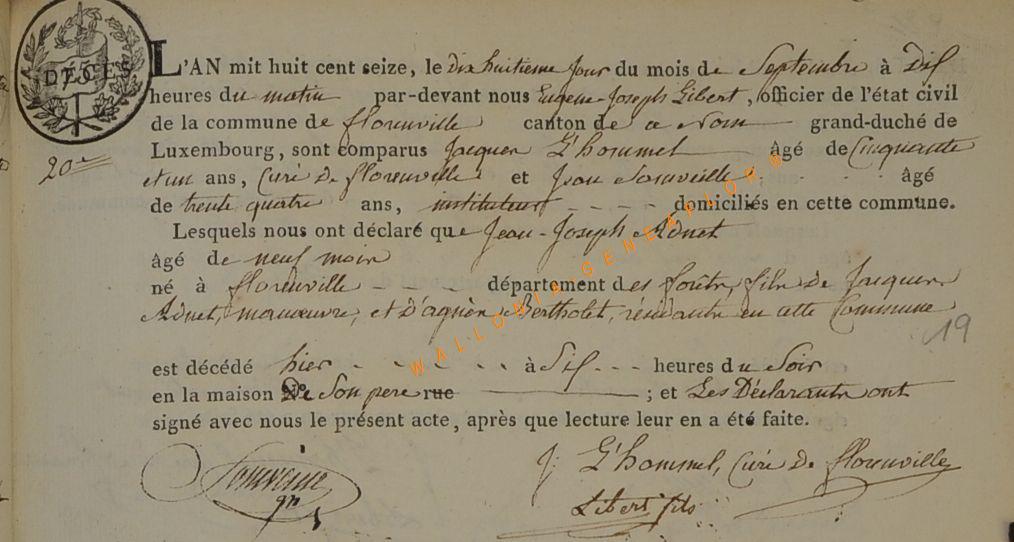 DÉCÈS
L'AN mil huit cent seize, le dix huitieme jour du mois de Septembre à Dix
heures du matin par-devant nous Eugene-Joseph Libert, officier de l'état civil
de la commune de florenville canton de ce Nom grand-duché de
Luxembourg, sont comparus Jacques L'hommel âgé de Cinquante
et un ans, Curé de florenville et Jean âgé
20e
de trente quatre ans, instituteur - - - - domiciliés en cette commune.
Lesquels nous ont déclaré que Jean-Joseph Adnet
âgé de neuf mois
né à florenville - - - - département des forêts, fils de Jacques
Adnet, manœuvre, et D'agnès Bertholet, résidants en cette Commune
19
est décédé hier - - - - - à Six - - - heures du Soir
en la maison De Son pere rue ; et Les Déclarants ont
signé avec nous le présent acte, après que lecture leur en a été faite.
J. L'hommel, Curé de florenville
Libert fils
WALLONIA GENEAFLOR ®